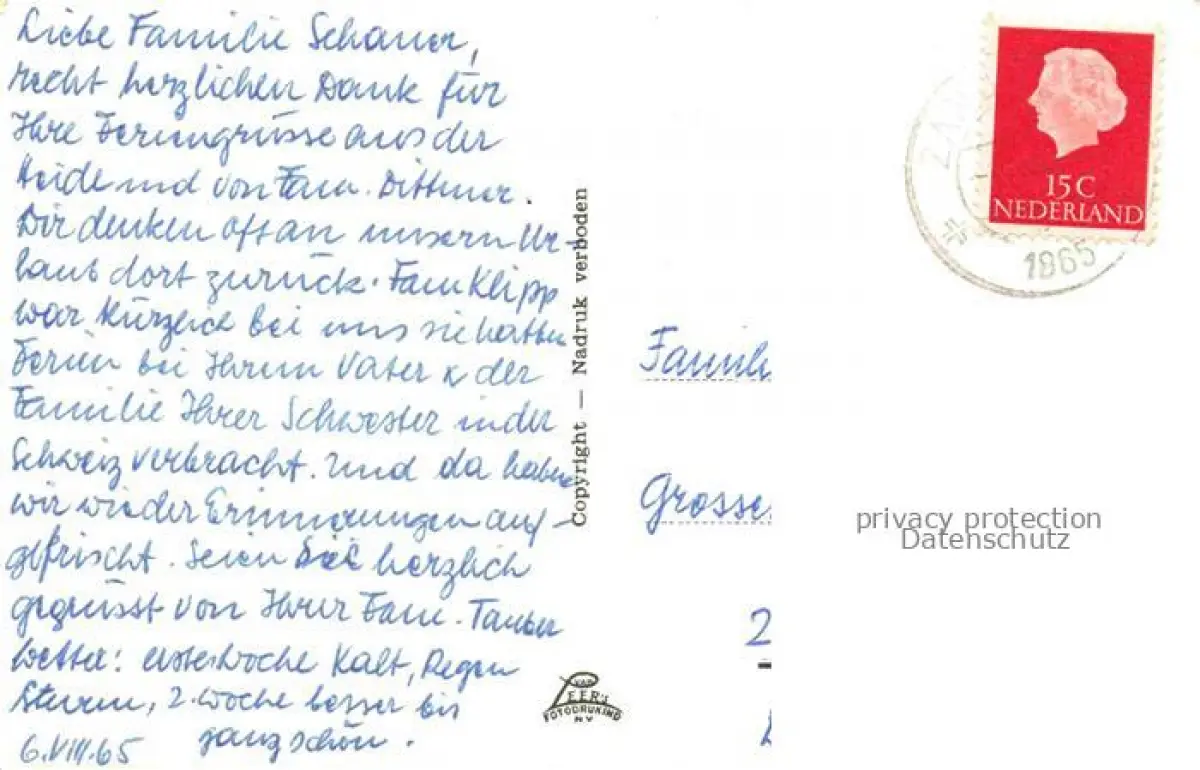 Liebe Familie Schauer,
recht herzlichen Dank für
Ihre Feriengrüsse aus der
Heide und von Fam. Dittmer.
Wir denken oft an unsern Ur
laub dort zurück. Fam Klipp
war kürzlich bei uns sie hatten
Ferien bei Ihrem Vater & der
Familie Ihrer Schwester in der
Schweiz verbracht. Und da haben
wir wieder Erinnerungen auf-
gefrischt. Seien Sie herzlich
gegrüsst von Ihrer Fam. Tauber
Wetter: erste Woche Kalt, Regen
Sturm, 2. Woche besser bis
ganz schön.
6.VIII.65
Copyright — Nadruk verboden
VAN
LEER's
FOTODRUKIND
N V
15 C
NEDERLAND
ZAN
1965
Famili
Grosse
2
privacy protection
Datenschutz